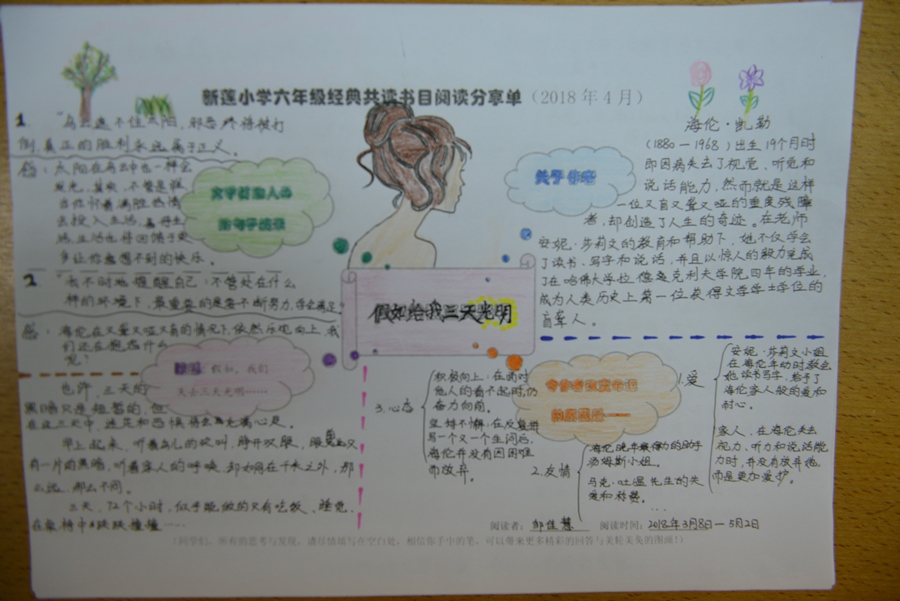 新莲小学六年级经典共读书目阅读分享单（2018年4月）
1 "乌云遮不住太阳，邪恶终将被打
倒，真正的胜利永远属于正义。
感：太阳在乌云中也一样会
发光。其实，不管是谁，
当你怀着满腔热情
去投入生活，
多让你意想不到的快乐。
文字打动人心
的句子摘录
2 "我不时地提醒自己：不管处在什么
样的环境下，最重要的是要不断努力，学会满足"
感：海伦在又聋又哑又盲的情况下，依然乐观向上，我
们还在抱怨什么
呢？
联想 假如，我们
失去三天光明……
也许，三天的
黑暗只是短暂的，但
在这三天中，
早上起来，听着鸟儿的欢叫，睁开双眼，
有一片的黑暗，听着家人的呼唤，却如同在千米之外，那
么远，那么不同。
三天，72个小时，似乎能做的只有吃饭、睡觉，
在
假如给我三天光明
关于作者
海伦·凯勒
（1880—1968）出生19个月时
即因病失去了视觉，听觉和
说话能力，然而就是这样
一位又盲又聋又哑的重度残障
者，却创造了人生的奇迹。在老师
安妮·莎莉文的教育和帮助下，她不仅学会
了读书、写字和说话，并且以惊人的毅力完成
了在哈佛大学拉德克利夫学院四年的学业，
成为人类历史上第一位获得文学学士学位的
盲聋人。
1.爱
安妮·莎莉文小姐
在海伦年幼时教会
她读书写字，给予了
海伦家人般的爱和
耐心。
家人，在海伦失去
视力、听力和说话能
力时，并没有放弃她，
而是更加爱护。
2.友情
海伦晚年最得力的助手
汤姆斯小姐。
马克·吐温先生的关
爱和称赞。
…
3.心态
积极向上：在面对
他人的看不起时，仍
奋力向前。
坚持不懈：在反复拼
写一个又一个生词后，
海伦并没有因困难
而放弃。
阅读者：邹佳慧 阅读时间：2018年3月8日—5月2日
（同学们，所有的思考与发现，请尽情填写在空白处，相信你手中的笔，可以带来更多精彩的回答与美轮美奂的图画！）